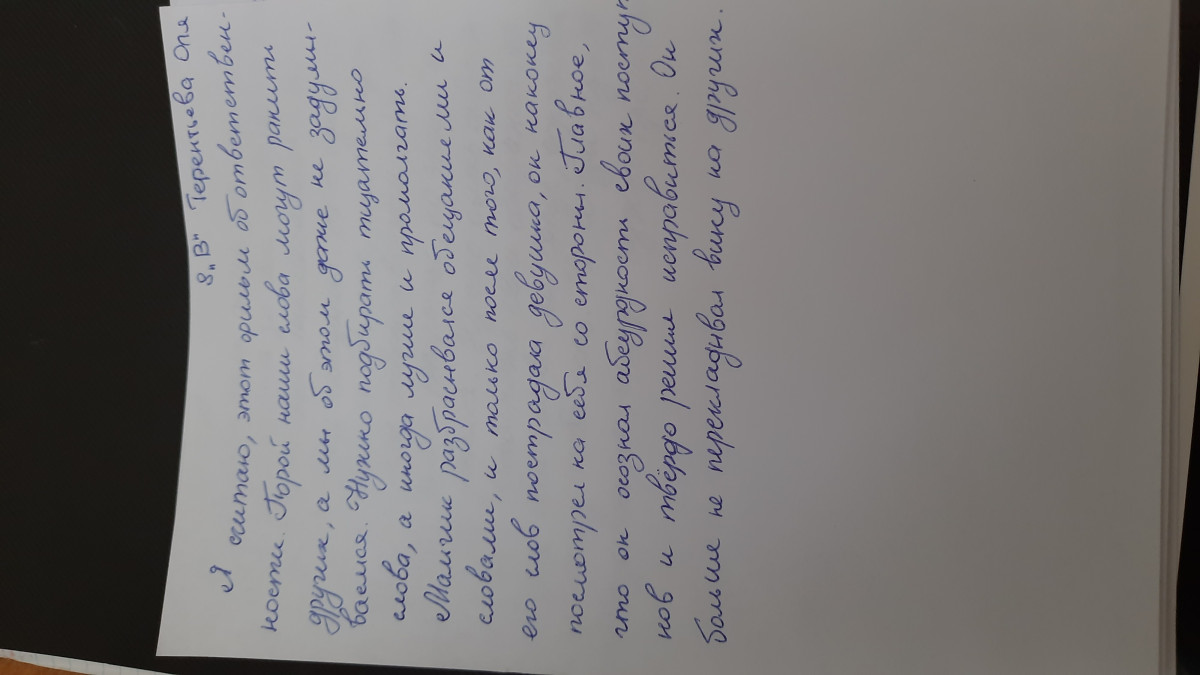 8 „В" Терентьева Оля
Я считаю, этот фильм об ответствен-
ности. Порой наши слова могут ранить
других, а мы об этом даже не задумы-
ваемся. Нужно подбирать тщательно
слова, а иногда лучше и промолчать.
Мальчик разбрасывался обещаниями и
словами, и только после того, как от
его слов пострадала девушка, он наконец
посмотрел на себя со стороны. Главное,
что он осознал абсурдность своих поступ
ков и твёрдо решил исправиться. Он
больше не перекладывал вину на других.